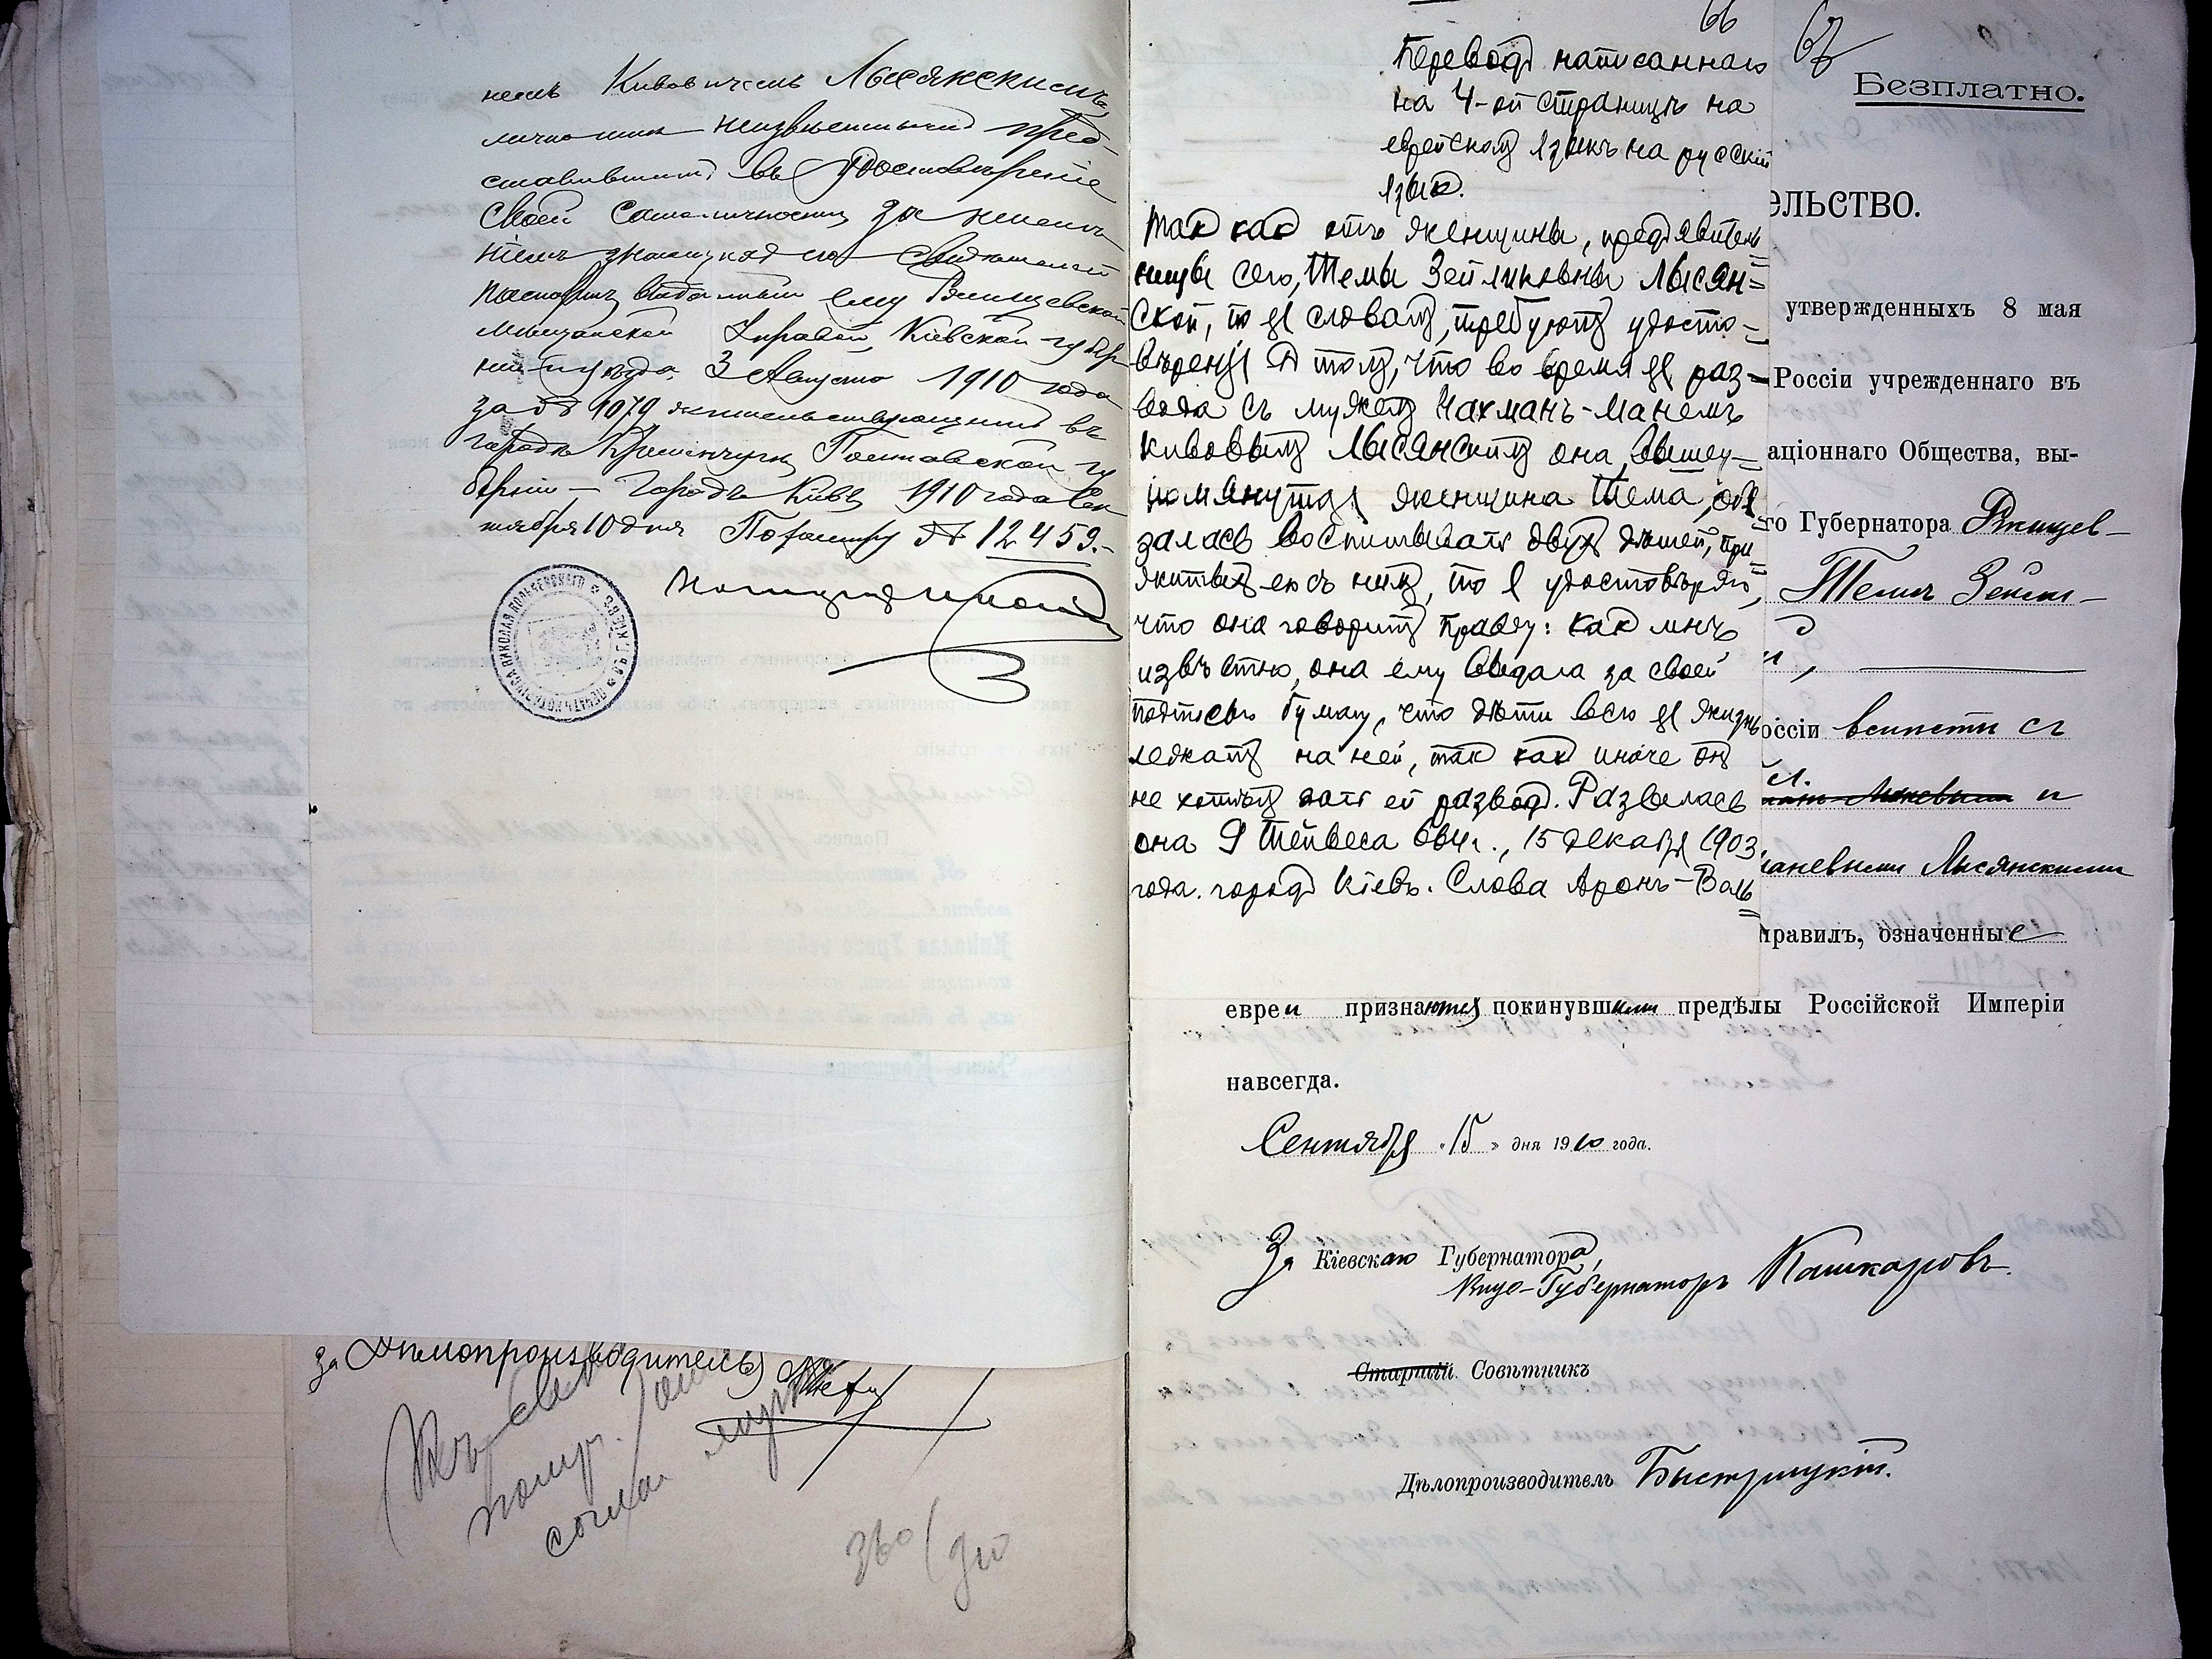 немъ Кивовичемъ Лысянскимъ,
лично мнѣ неизвѣстнымъ пред-
ставившимъ въ удостовѣреніе
своей самоличности за неимѣ-
ніемъ знающихъ его свидѣтелей
паспортъ выданный ему Ржищевской
мѣщанской Управой, Кіевской губер-
ніи и уѣзда, 3 Августа 1910 года
за № 1079 жительствующимъ въ
городѣ Кременчугѣ Полтавской гу
берніи – Городъ Кіевъ 1910 года Сен
тября 10 дня По реестру № 12459.-
за Дѣлопроизводителя
согла
360
66
Переводъ написаннаго
на 4-ой страницѣ на
еврейскомъ языкѣ на русскій
языкъ.
Такъ какъ отъ женщины, предъявитель
ницы сего, Темы Зейликовны Лысян=
ской, по ея словамъ, требуютъ удосто-
вѣренія о томъ, что во время ея раз-
вода съ мужемъ Нахманъ-Манемъ
Кивовымъ Лысянскимъ она, вышеу-
помянутая женщина Тема, обя
залась воспитывать двухъ дѣтей, при
житыхъ ею съ нимъ, то я удостовѣряю,
что она говоритъ правду: какъ мнѣ
извѣстно, она ему выдала за своей
подписью бумагу, что дѣти всю ея жизнь
лежатъ на ней, такъ какъ иначе онъ
не хотѣлъ дать ей разводъ. Развелась
она 9 Тейвеса 664г., 15 декабря 1903
года. городъ Кіевъ. Слова Аронъ-Воль
67
Безплатно.
ЕЛЬСТВО.
утвержденныхъ 8 мая
Россіи учрежденнаго въ
аціоннаго Общества, вы-
го Губернатора Ржищев-
Темѣ Зейли-
оссіи вмѣстѣ съ
и
аневыми Лысянскими
правилъ, означенные
евреи признаются покинувшими предѣлы Россійской Имперіи
навсегда.
Сентября «15» дня 1910 года.
За Кіевскаго Губернатора,
Вице-Губернаторъ Кашкаровъ.
Старшій Совѣтникъ
Дѣлопроизводитель Быстрицкій.